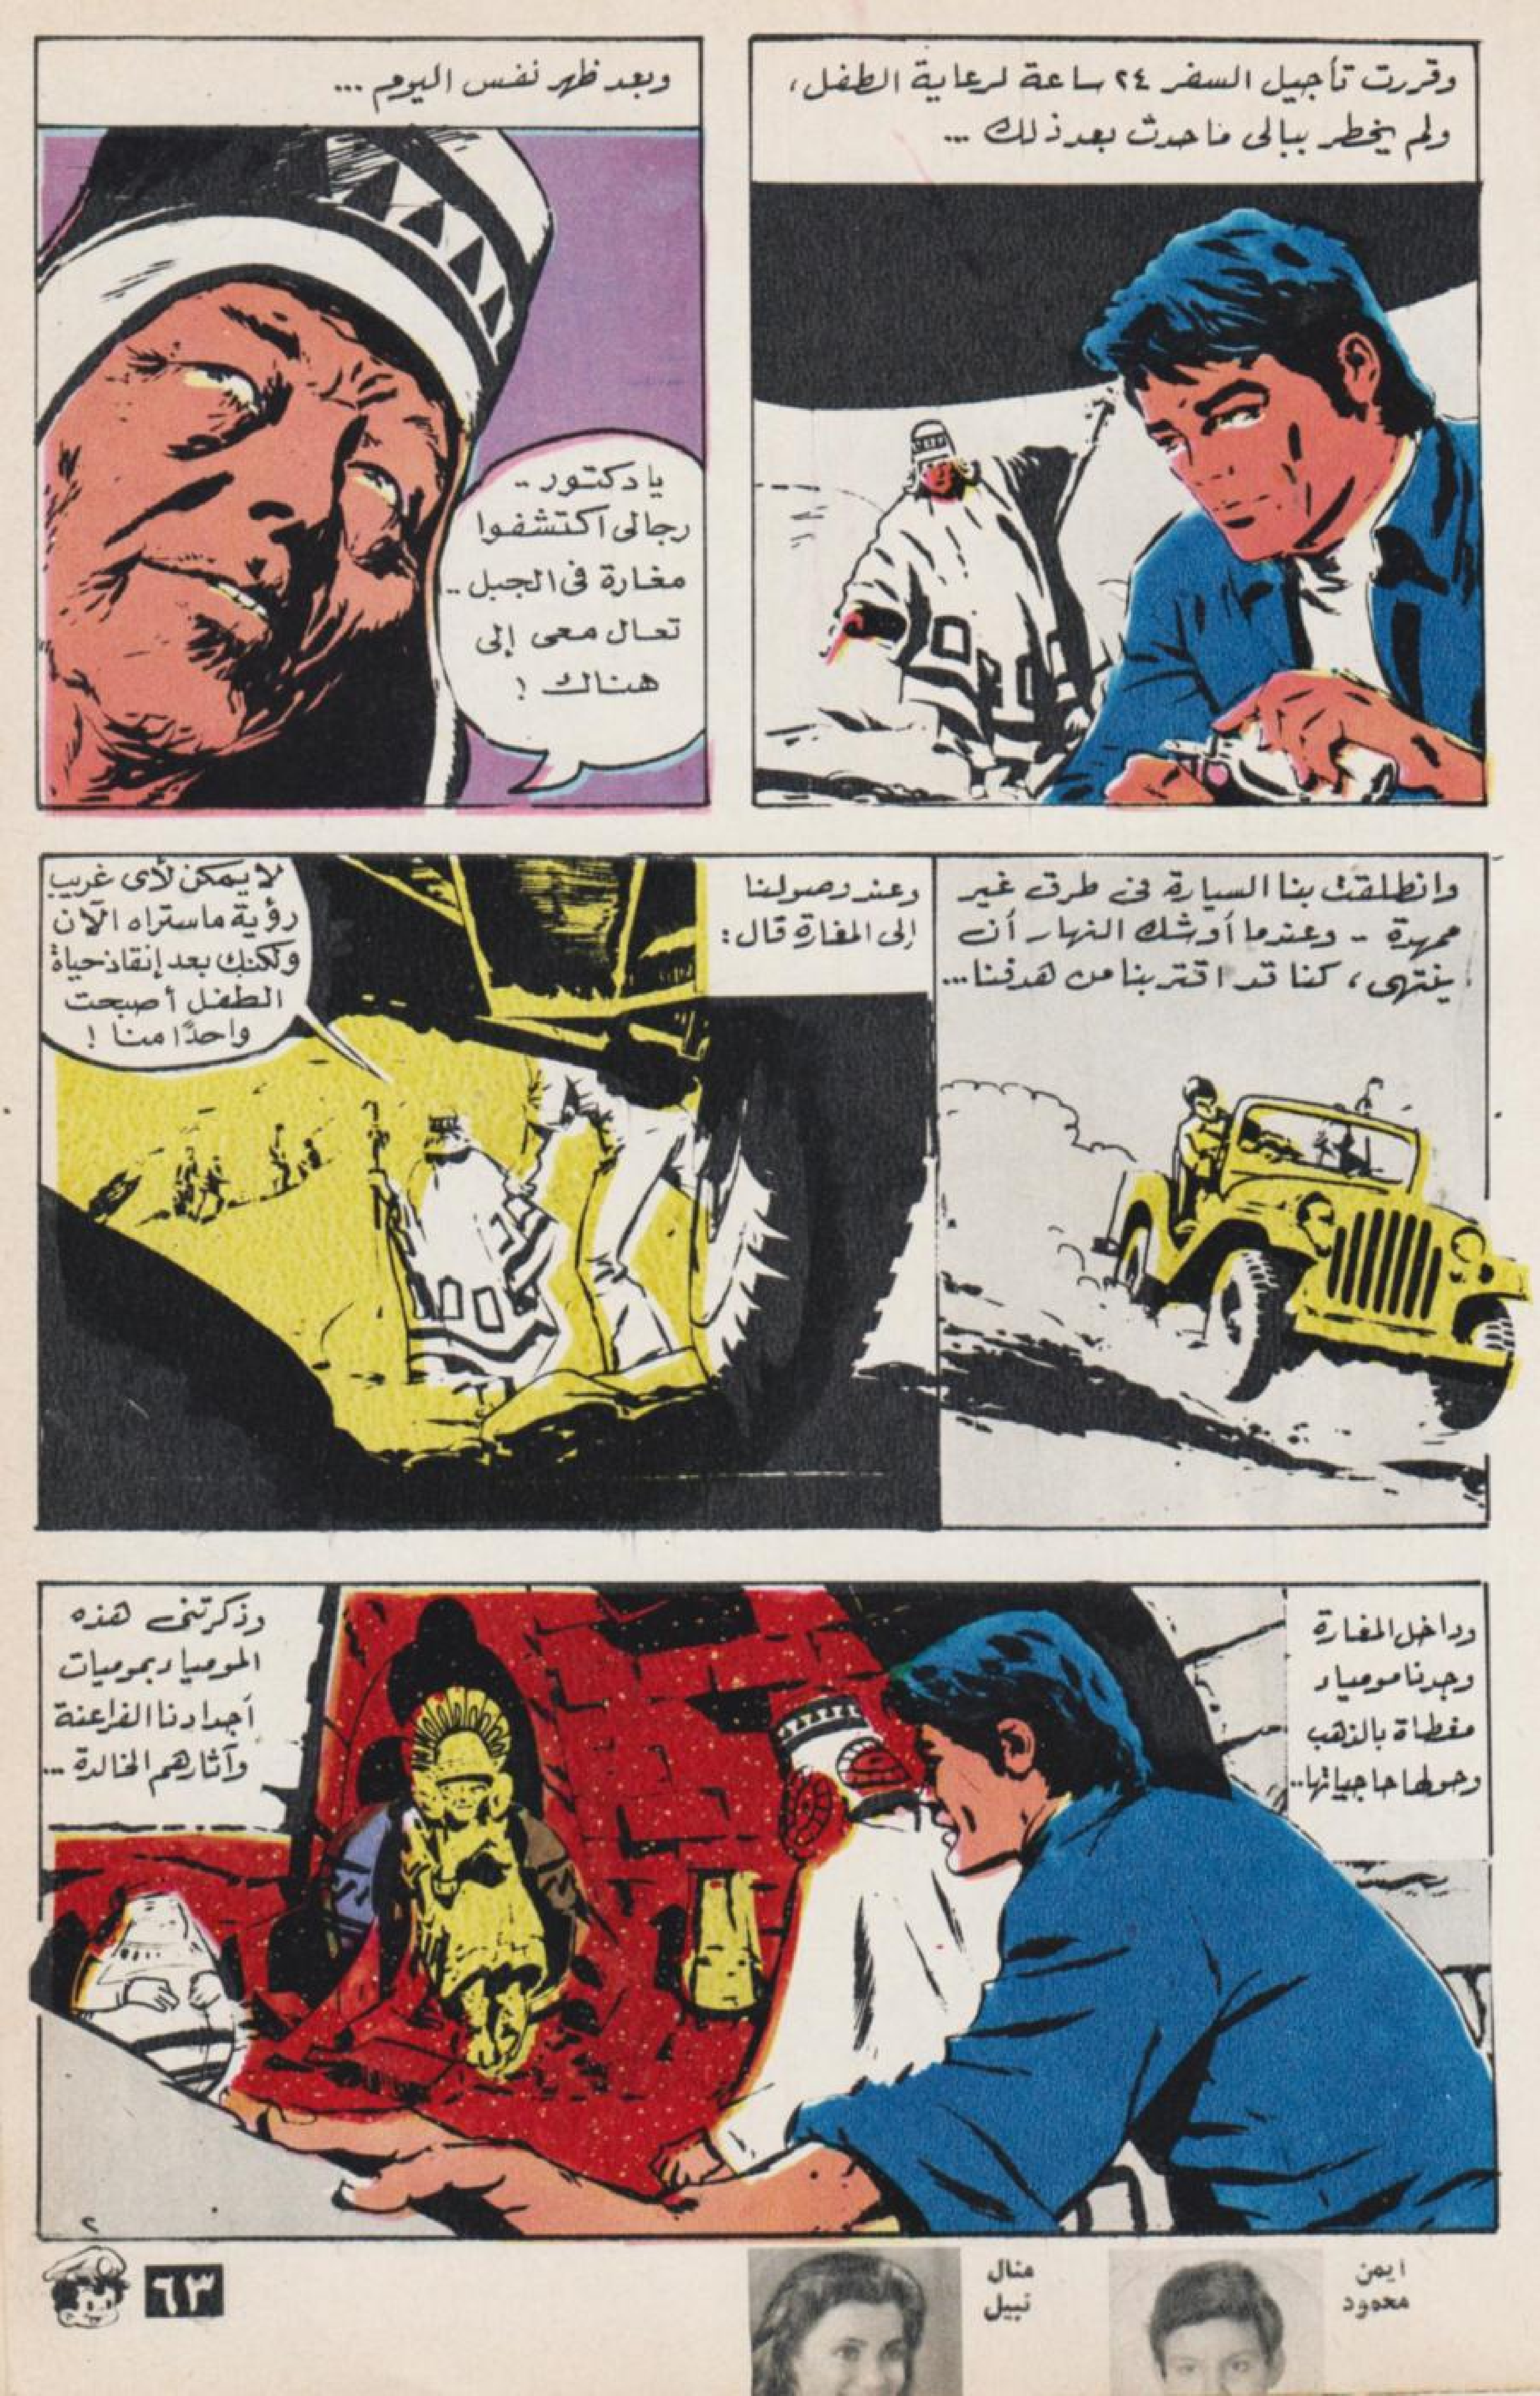 وقررت تأجيل السفر ٢٤ ساعة لرعاية الطفل،
ولم يخطر ببالى ما حدث بعد ذلك ...
وبعد ظهر نفس اليوم ...
يا دكتور ..
رجالى اكتشفوا
مغارة فى الجبل ..
تعال معى إلى
هناك !
وانطلقت بنا السيارة فى طرق غير
ممهدة - وعندما أوشك النهار أن
ينتهى، كنا قد اقتربنا من هدفنا...
وعند وصولنا
إلى المغارة قال :
لا يمكن لأى غريب
رؤية ماستراه الآن
ولكنك بعد إنقاذ حياة
الطفل أصبحت
واحدًا منا !
وداخل المغارة
وجدنا مومياء
مغطاة بالذهب
وحولها حاجياتها..
وذكرتنى هذه
المومياء بموميات
أجدادنا الفراعنة
وآثارهم الخالدة ...
٢
ايمن
محمود
منال
نبيل
٦٣